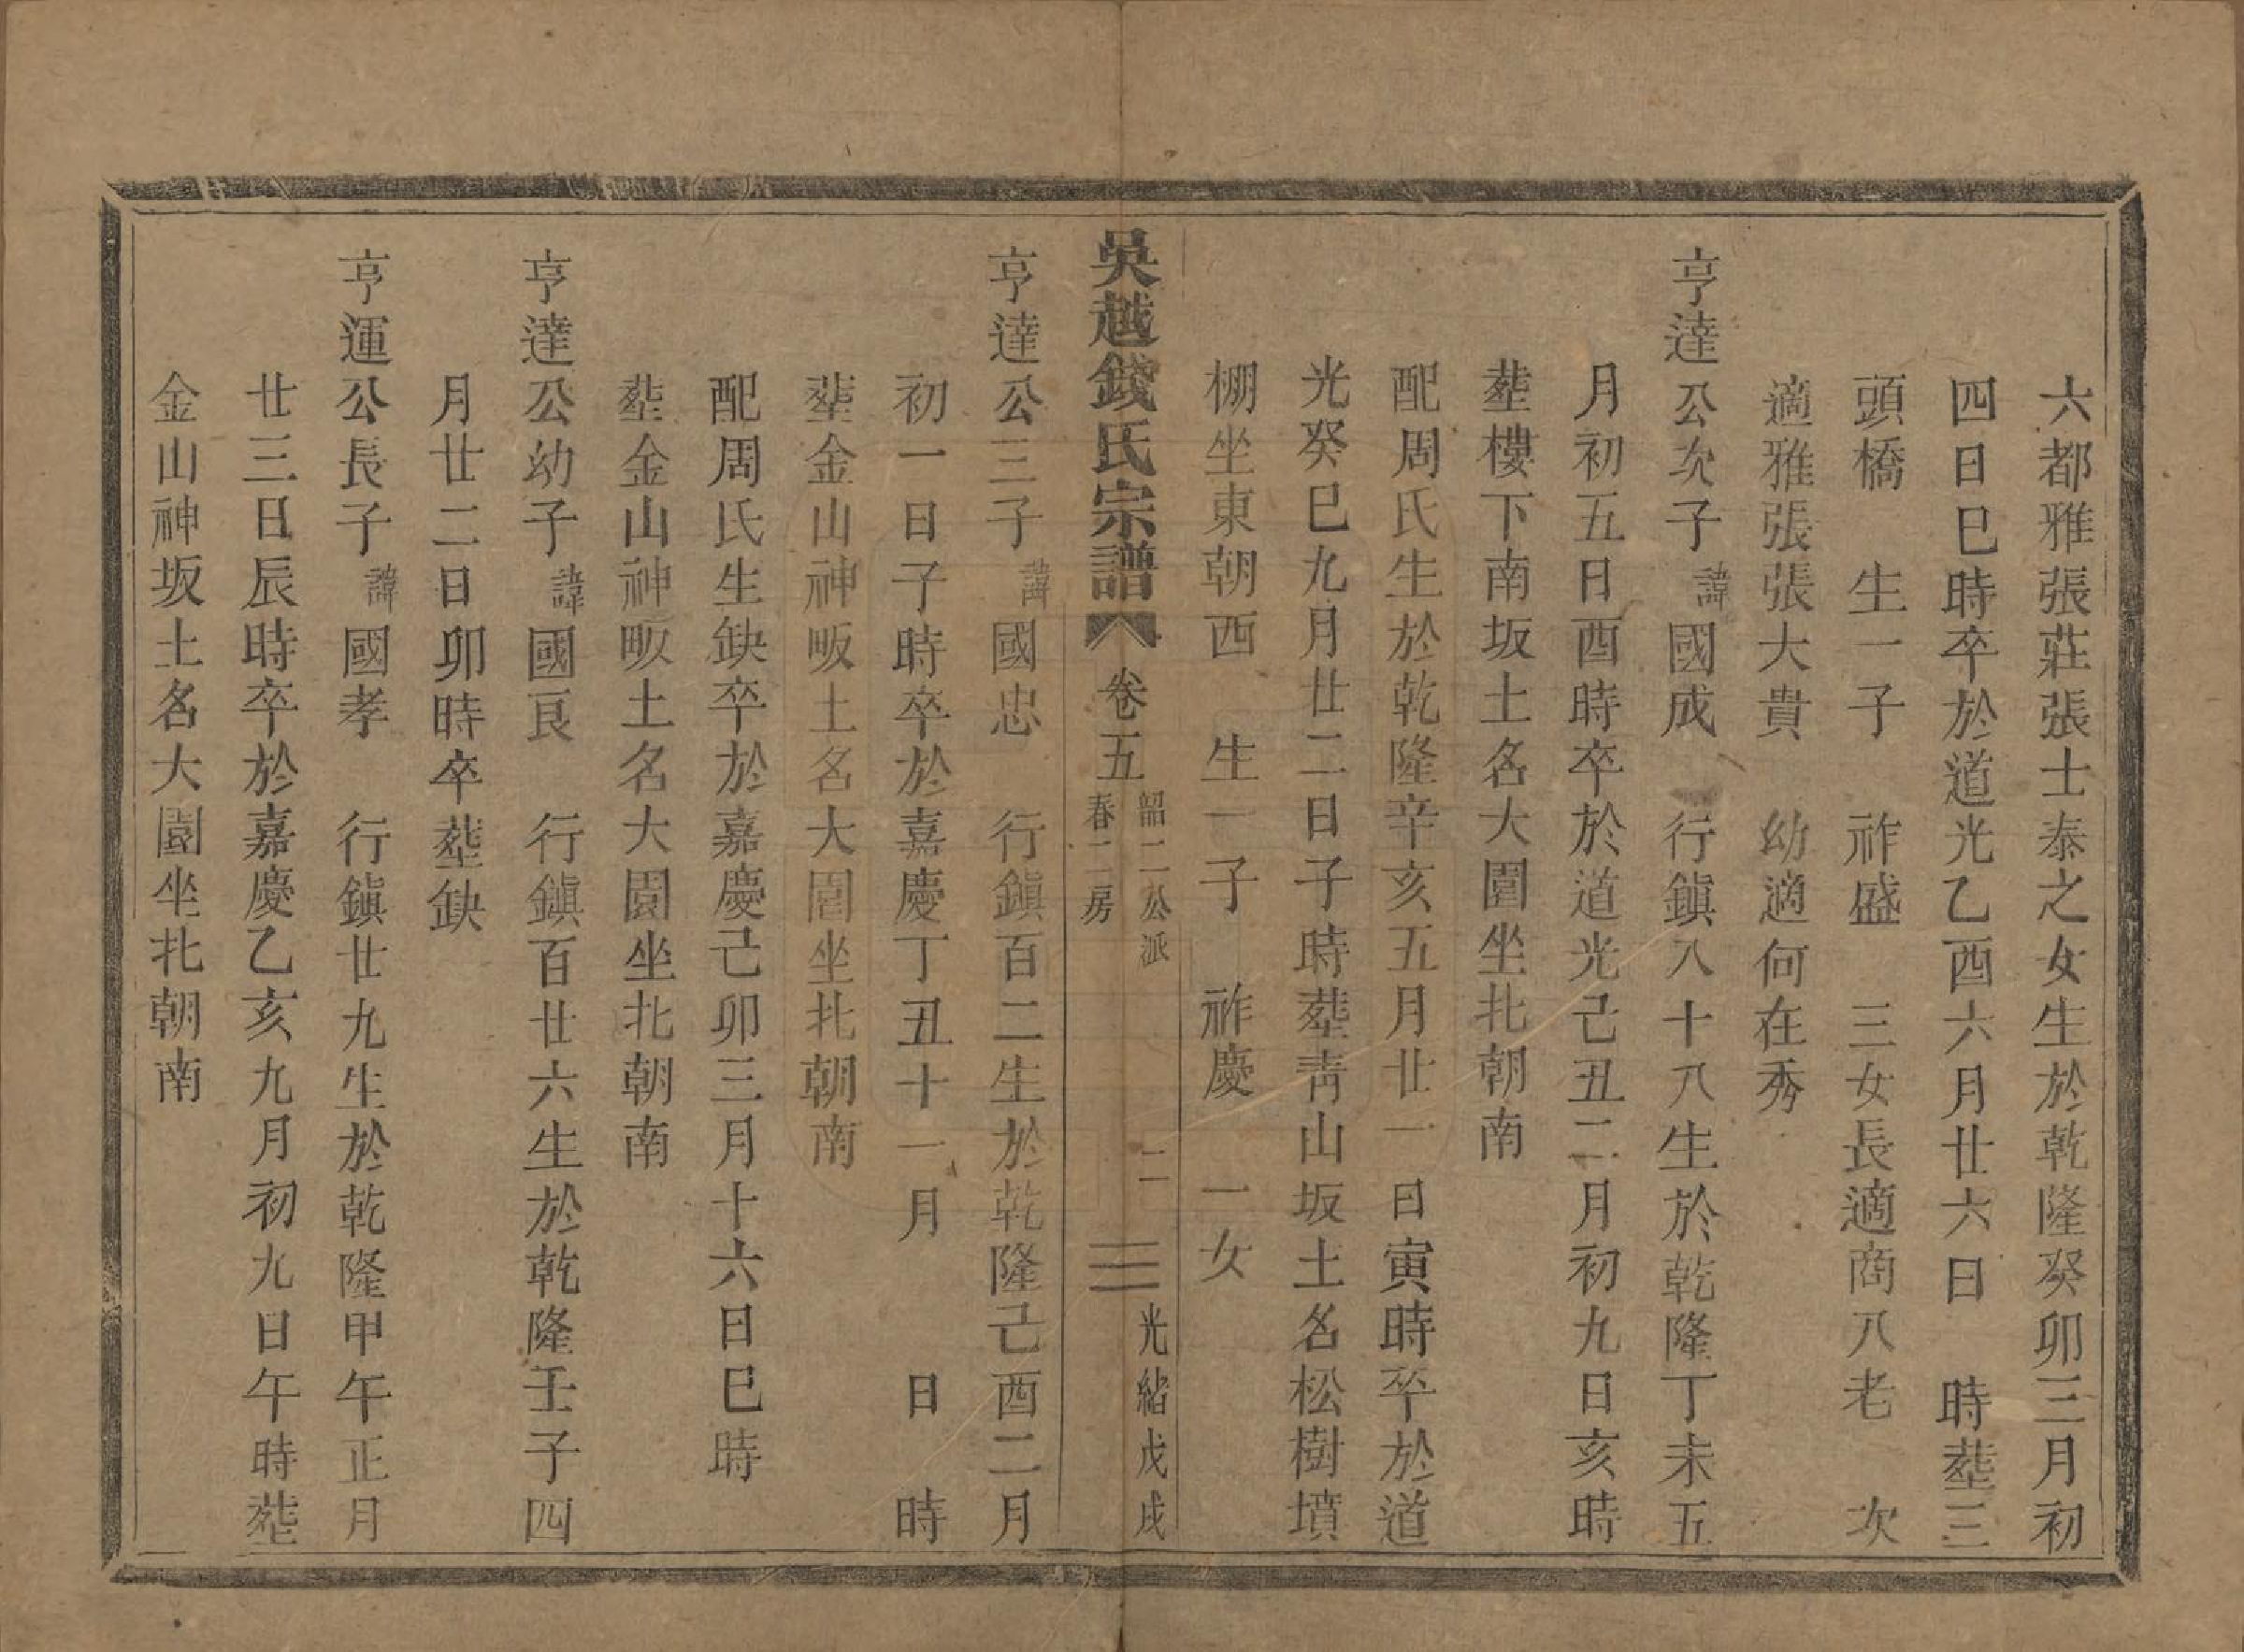 六都雅張莊張士泰之女生於乾隆癸卯三月初
四日巳時卒於道光乙酉六月廿六日　時塟三
頭橋　生一子　祚盛　三女長適商八老　次
適雅張張大貴　幼適何在秀
亨達公次子諱國成　行鎮八十八生於乾隆丁未五
月初五日酉時卒於道光己丑二月初九日亥時
塟樓下南坂土名大園坐北朝南
配周氏生於乾隆辛亥五月廿一日寅時卒於道
光癸巳九月廿二日子時塟青山坂土名松樹墳
棚坐東朝西　生一子　祚慶　一女
吳越錢氏宗譜　卷五　韶二公派　春二房　二　三　光緒戊戌
亨達公三子諱國忠　行鎮百二生於乾隆己酉二月
初一日子時卒於嘉慶丁丑十一月　日　時
塟金山神畈土名大園坐北朝南
配周氏生缺卒於嘉慶己卯三月十六日巳時
塟金山神畈土名大園坐北朝南
亨達公幼子諱國良　行鎮百廿六生於乾隆壬子四
月廿二日卯時卒塟缺
亨運公長子諱國孝　行鎮廿九生於乾隆甲午正月
廿三日辰時卒於嘉慶乙亥九月初九日午時塟
金山神坂土名大園坐北朝南